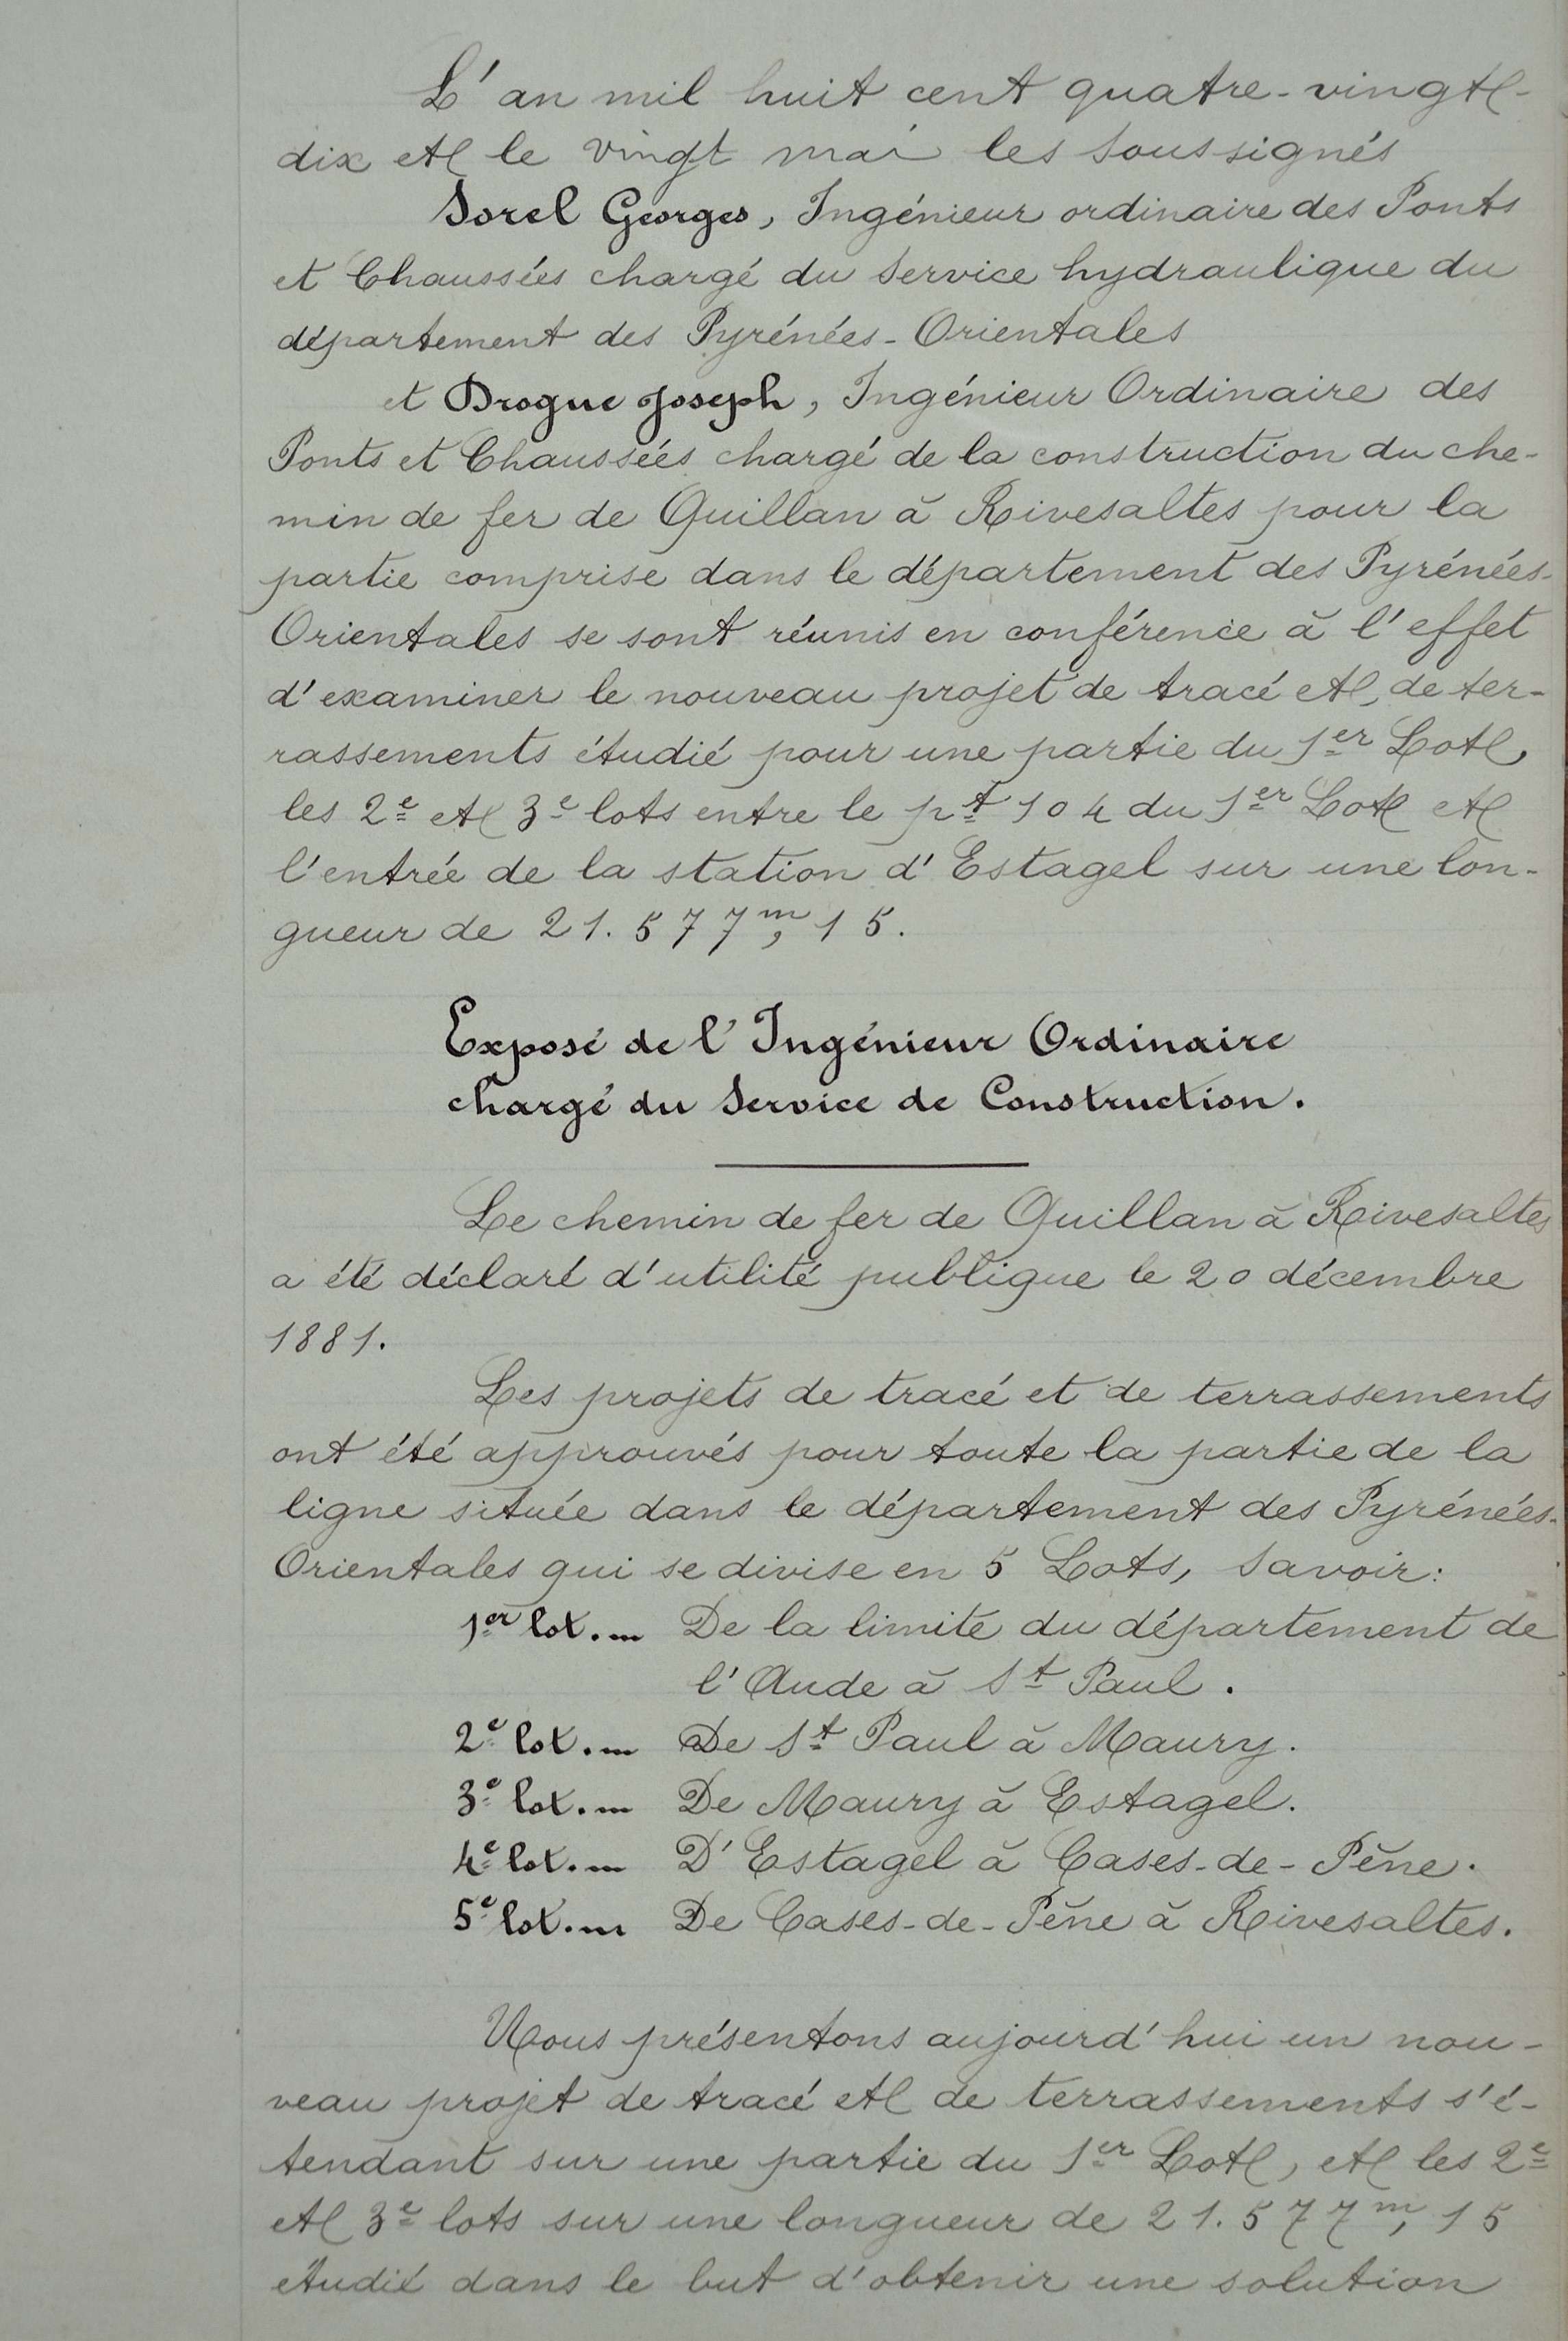 L'an mil huit cent quatre-vingt-
dix et le vingt mai les soussignés
Sorel Georges, Ingénieur ordinaire des Ponts
et Chaussées chargé du Service hydraulique du
département des Pyrénées-Orientales
et Drogue Joseph, Ingénieur Ordinaire des
Ponts et Chaussées chargé de la construction du che-
min de fer de Quillan à Rivesaltes pour la
partie comprise dans le département des Pyrénées-
Orientales se sont réunis en conférence à l'effet
d'examiner le nouveau projet de tracé et de ter-
rassements étudié pour une partie du 1er Lot,
les 2e et 3e lots entre le pt 104 du 1er Lot et
l'entrée de la station d'Estagel sur une lon-
gueur de 21.577m,15.
Exposé de l'Ingénieur Ordinaire
chargé du Service de Construction.
Le chemin de fer de Quillan à Rivesaltes
a été déclaré d'utilité publique le 20 décembre
1881.
Les projets de tracé et de terrassements
ont été approuvés pour toute la partie de la
ligne située dans le département des Pyrénées-
Orientales qui se divise en 5 Lots, Savoir:
1er lot.— De la limite du département de
l'Aude à St Paul.
2e lot.— De St Paul à Maury.
3e lot.— De Maury à Estagel.
4e lot.— D'Estagel à Cases-de-Pène.
5e lot.— De Cases-de-Pène à Rivesaltes.
Nous présentons aujourd'hui un nou-
veau projet de tracé et de terrassements s'é-
tendant sur une partie du 1er Lot, et les 2e
et 3e lots sur une longueur de 21.577m,15
étudié dans le but d'obtenir une solution